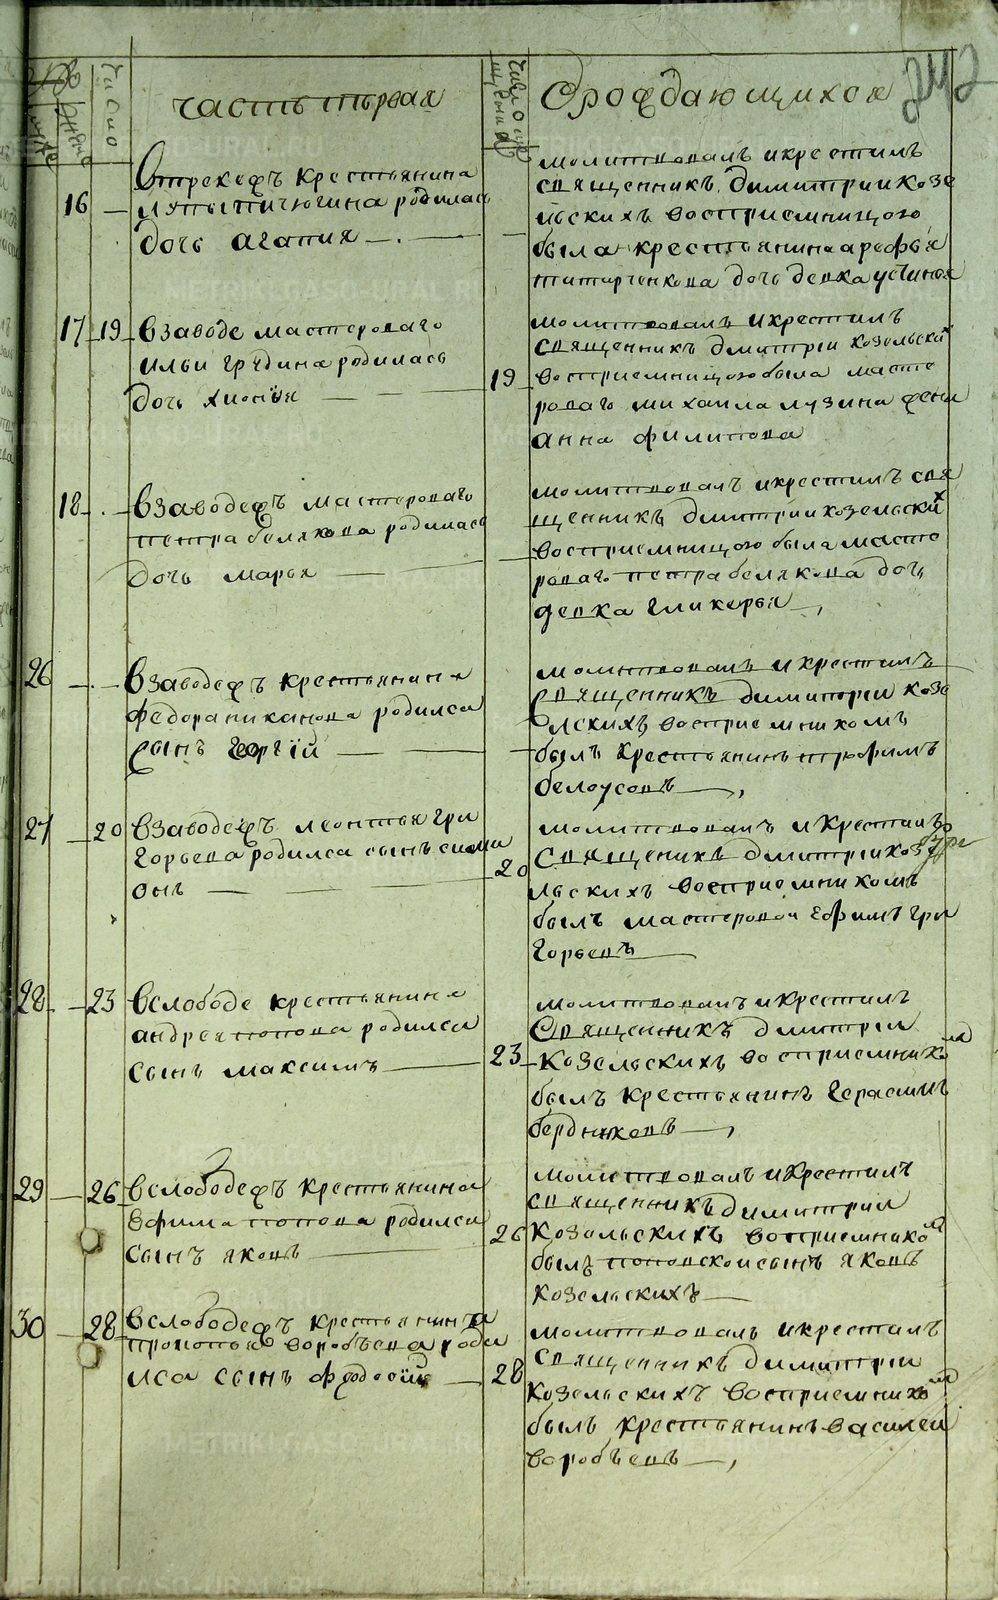 242
часть первая
О рождающихся
число
16 — Втрекежъ крестьянина
родилась
дочь агапия
молитвовалъ икрестилъ
священникъ Димитрии козе
льскихъ восприемницою
была крестьянина арефья
дочь девка устинья
17 19 взаводе мастероваго
ильи грудина родилась
дочь хионїя
19
молитвовалъ икрестилъ
священникъ дмитрїи козельскихъ
восприемницою была масте
роваго михаила лузина жена
анна филипова
18 взаводежъ мастероваго
петра белякова родилась
дочь марья
молитвовалъ икрестилъ свя
щенникъ дмитрїи козельскихъ
восприемницою была масте
роваго петра белякова дочь
девка гликерья
26 взаводежъ крестьянина
федора никанова родился
сынъ георгїй
молитвовалъ икрестилъ
священникъ димитрїи козе
лскихъ восприемникомъ
былъ крестьянинъ трофимъ
белоусовъ
27 20 взаводежъ леонтья гри
горьева родился сынъ симе
онъ
20
молитвовалъ икрестилъ
священикъ дмитрїи козе
льскихъ восприемникомъ
былъ мастеровои ефимъ гри
горьевъ
28 23 вслободе крестьянина
андрея попова родился
сынъ максимъ
23
молитвовалъ икрестилъ
священникъ дмитрїи
козельскихъ восприемникомъ
былъ крестьянинъ герасимъ
бердниковъ
29 26 вслободежъ крестьянина
ефима попова родился
сынъ яковъ
26
молитвовалъ икрестилъ
священникъ димитрїи
козельскихъ восприемникомъ
былъ поповскои сынъ яковъ
козельскихъ
30 28 вслободежъ крестьянина
прокопья воробьева роди
лса сынъ федосїй
28
молитвовалъ икрестилъ
священникъ димитрїи
козельскихъ восприемникомъ
былъ крестьянинъ василеи
воробьевъ